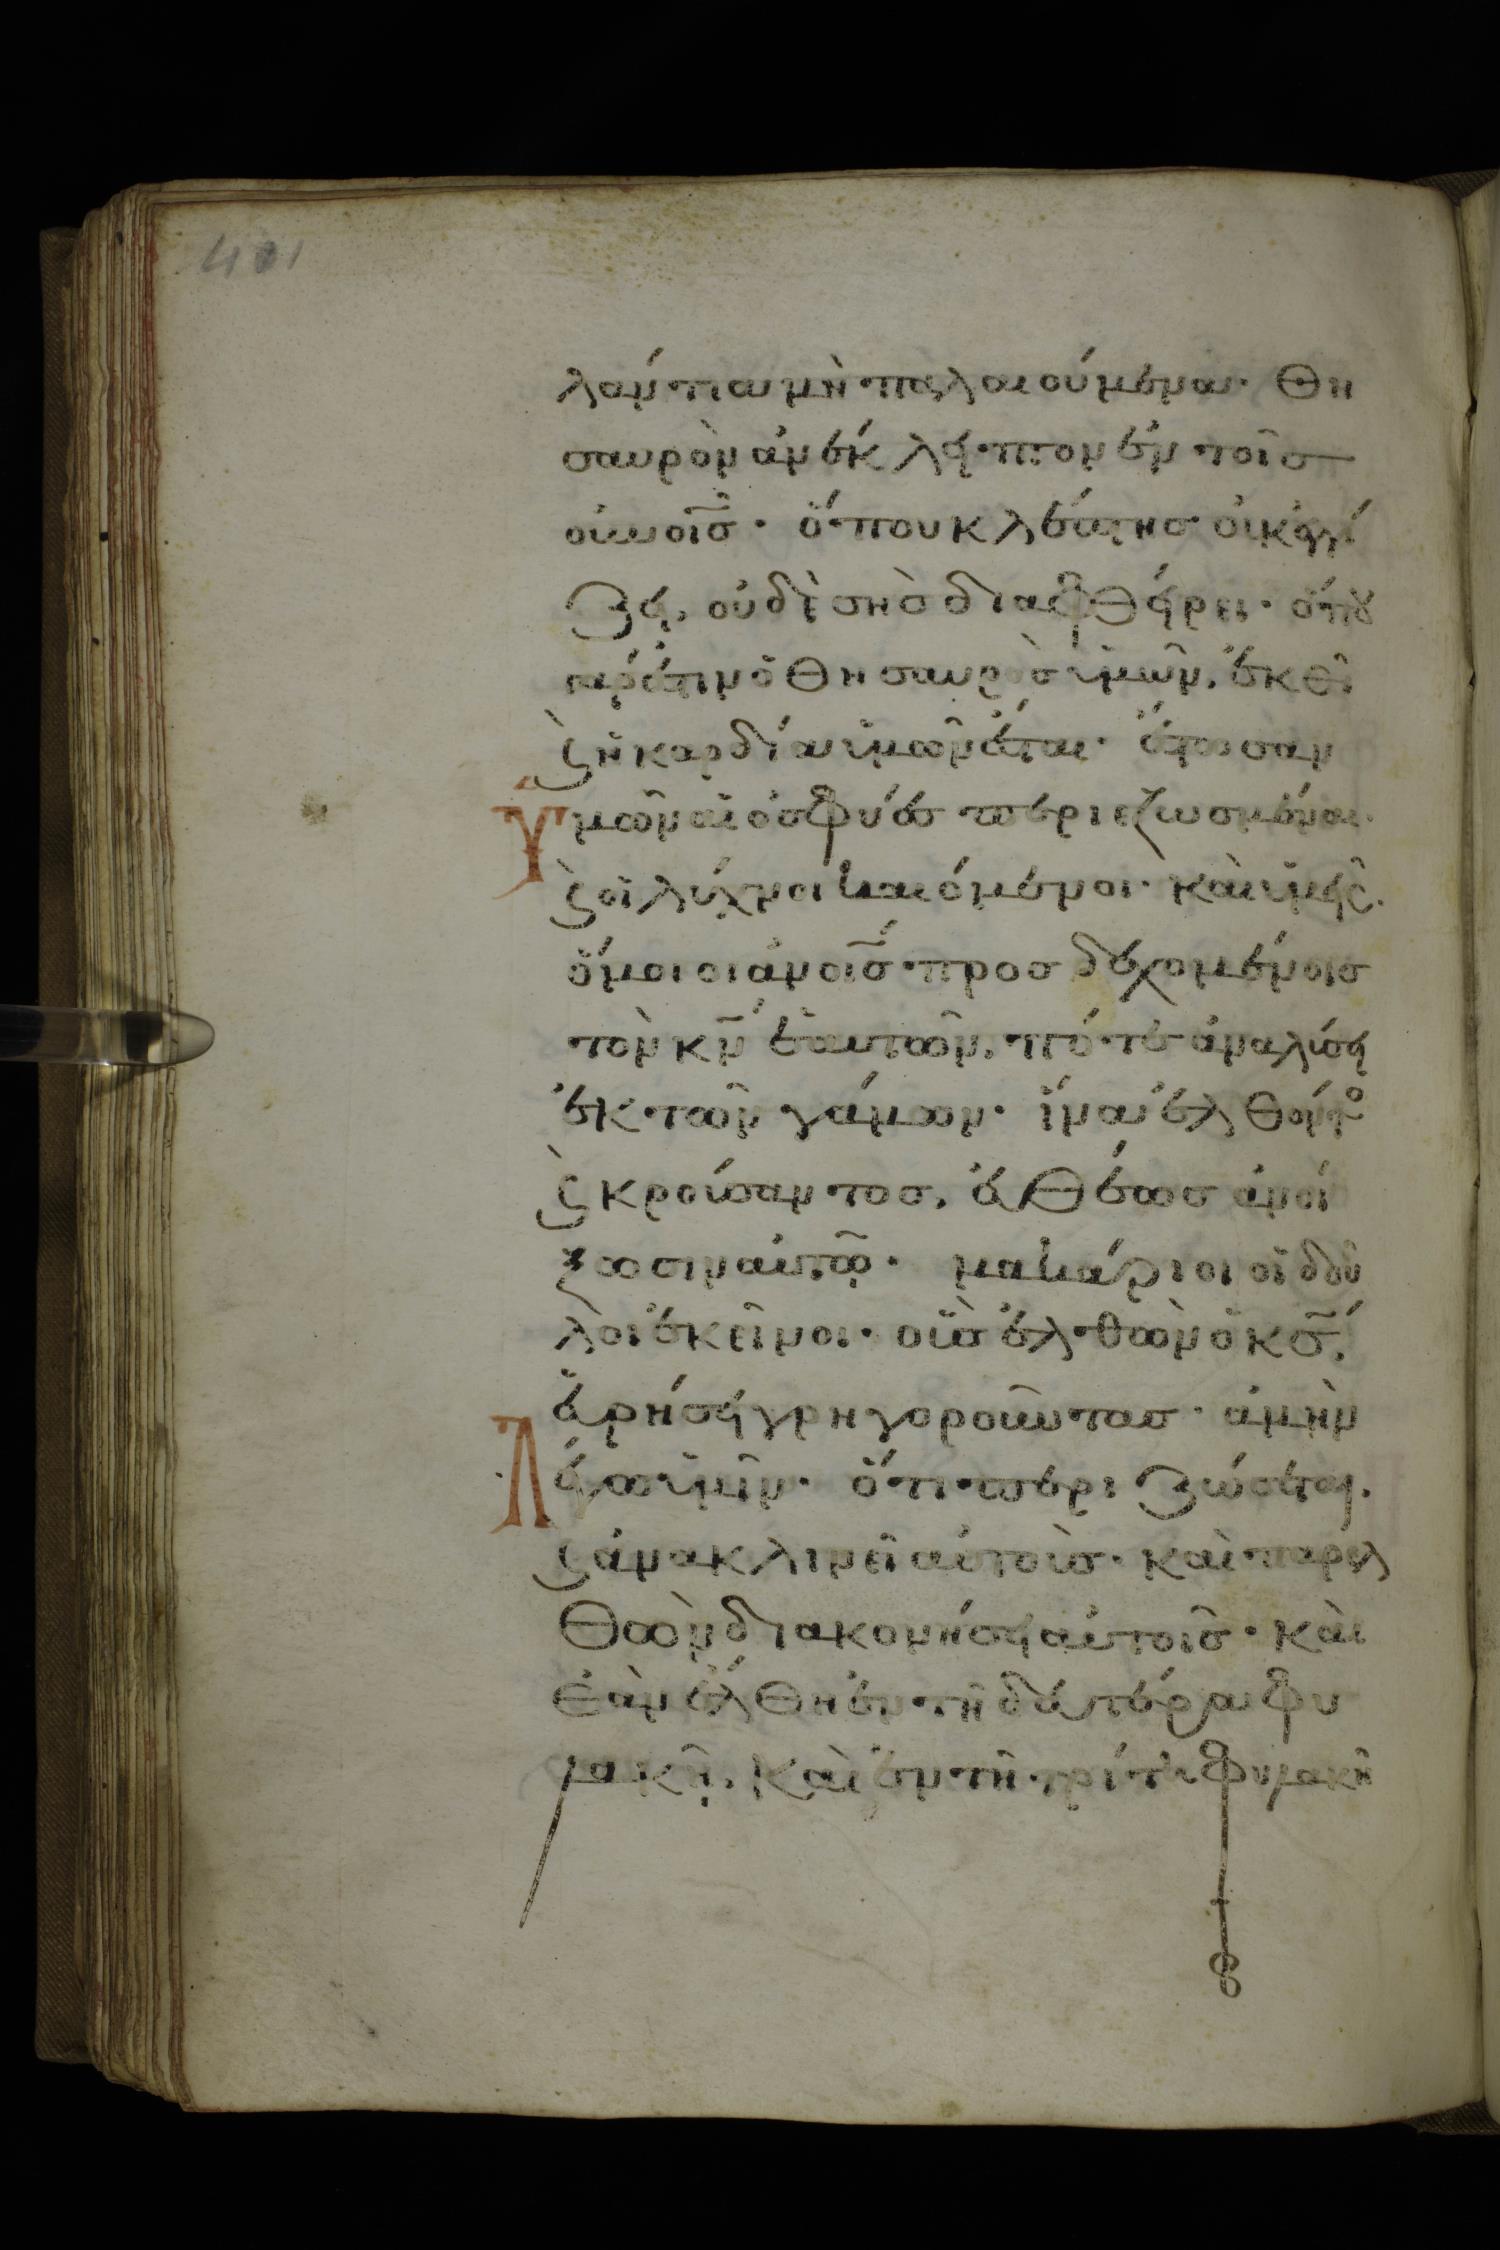 401
λάντια μὴ παλαιούμενα· θη
σαυρὸν ἀνέκλειπτον ἐν τοῖς
οὐνοῖς· ὅπου κλέπτης οὐκ ἐγγί
ζει, οὐδὲ σὴς διαφθείρει· ὅπου
γάρ ἐστιν ὁ θησαυρὸς ὑμῶν, ἐκεῖ
ϗ ἡ καρδία ὑμῶν ἔσται· ἔστωσαν
Ὑμῶν αἱ ὀσφύες περιεζωσμέναι·
ϗ οἱ λύχνοι καιόμενοι· καὶ ὑμεῖς
ὅμοιοι ἀνοῖς προσδεχομένοις
τὸν κν ἑαυτῶν, πότε ἀναλύσει
ἐκ τῶν γάμων· ἵνα ἐλθόντο
ϗ κρούσαντος, εὐθέως ἀνοί
ξωσιν αὐτῷ· μακάριοι οἱ δοῦ
λοι ἐκεῖνοι· οὓς ἐλθὼν ὁ κς,
εὑρήσει γρηγοροῦντας· ἀμὴν
Λέγω ὑμῖν· ὅτι περιζώσεται,
ϗ ἀνακλινεῖ αὐτοὺς· καὶ παρελ
θὼν διακονήσει αὐτοῖς· καὶ
ἐὰν ἔλθη ἐν τῆ δευτέρα φυ
λακῆ, καὶ ἐν τῆ τρίτη φυλακῆ